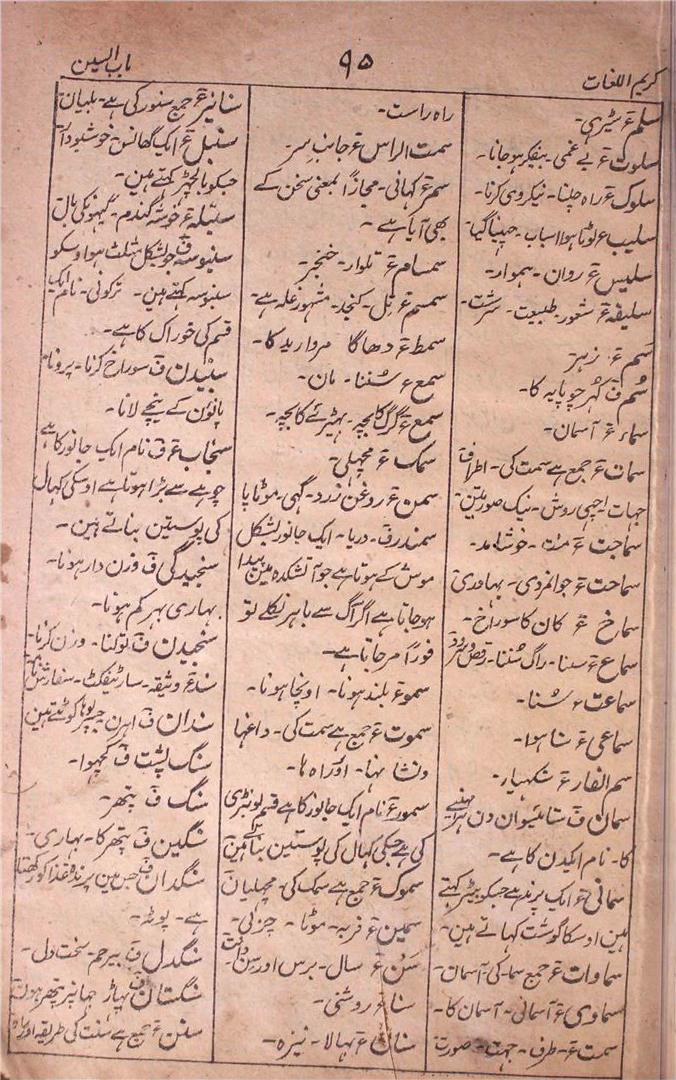 کریم اللغات
۹۵
باب السین
سلم ع سیڑہی۔
سلوت ع بے غمی۔ بیفکر ہو جانا۔
سلوک ع راہ چلنا۔ نیکروی کرنا۔
سلیب ع لوٹا ہوا اسباب۔ چھینا گیا
سلیس ع روان۔ ہموار۔
سلیقہ ع شعور۔ طبیعت۔ سرشت۔
سم ع زہر
سُم ف کُہر چوپایہ کا۔
سماء ع آسمان۔
سمات ع جمع ہے سمت کی۔ اطراف
جہات اچہی روش۔ نیک صورتین۔
سماجت ع منت۔ خوشامد۔
سماحت ع جوانمردی۔ بہادری
سماخ ع کان کا سوراخ۔
سماع ع سننا۔ راگ سُننا۔ رقص و سرود
سماعت ع سُننا۔
سماعی ع سنا ہوا۔
سم الفار ع سنکہیار۔
سمان ف ستائیسوان دن ہر مہینے
کا۔ نام ایکدن کا ہے۔
سمانی ع ایک پرند ہے جسکو بٹیر کہتے
ہین اوسکا گوشت کہاتے ہین۔
سماوات ع جمع سما کی آسمان۔
سماوی ع آسمانی۔ آسمان کا۔
سمت ع۔ طرف۔ جہت۔ صورت
راہ راست۔
سمت الراس ع جانب سر۔
سمر ع کہانی۔ مجازاً بمعنی سخن کے
بھی آیا ہے۔
سمسام ع تلوار۔ خنجر۔
سمسم ع تِل۔ کنجد۔ مشہور غلہ ہے۔
سمط ع دھاگا مروارید کا۔
سمع ع سُننا۔ مان۔
سمع ع گرگ کا بچہ۔ بہیڑئے کا بچہ۔
سمک ع مچہلی۔
سمن ع روغن زرد۔ گہی۔ موٹاپا
سمندر ف۔ دریا۔ ایک جانور بشکل
موش کے ہوتا ہے جو آتشکدہ مین پیدا
ہو جاتا ہے اگر آگ سے باہر نکلے تو
فوراً مر جاتا ہے۔
سمو ع بلند ہونا۔ اونچا ہونا۔
سموت ع جمع ہے سمت کی۔ داغہا
ونشانہا۔ اور راہ ہا۔
سمور ع نام ایک جانور کا ہے قسم لونبڑی
کی ہے جسکی کہال کی پوستین بناتے ہین
سموک ع جمع ہے سمک کی۔ مچہلیان
سمین ع فربہ۔ موٹا۔ چربی۔
سَن ع سال۔ برس اور سِن دانت
سنا ع روشنی۔
سنان ع بہالا۔ نیزہ۔
سنانیر ع جمع سنور کی ہے۔ بلیان
سنبل ع ایک گہانس خوشبودار
جسکو بالچہڑ کہتے ہین۔
سنبلہ ع خوشہ گندم۔ گیہون کی بال
سنبوسہ ف جو بشکل مثلث ہو اوسکو
سنبوسہ کہتے ہین۔ ترکونی۔ نام ایک
قسم کی خوراک کا ہے۔
سنبیدن ف سوراخ کرنا۔ پرونا۔
پانوُن کے نیچے لانا۔
سنجاب ع ف نام ایک جانور کا ہے
چوہے سے بڑا ہوتا ہے اوسکی کہال
کی پوستین بناتے ہین۔
سنجیدگی ف وزن دار ہونا۔
بہاری بہر کم ہونا۔
سنجیدن ف تولنا۔ وزن کرنا۔
سند ع وثیقہ۔ سارٹیفکٹ۔ سفارش نامہ
سندان ف اہرن جسپر لوہا کوٹتے ہین
سنگ پشت ف کچہوا۔
سنگ ف پتھر۔
سنگین ف پتھر کا۔ بہاری۔
سنگدان ف جس مین پرندہ غذا کو رکھتا
ہے۔ پوٹہ۔
سنگدل ف بیرحم۔ سخت دل۔
سنگستان ف پہاڑ جہانپر پتھر ہون
سنن ع جمع ہے سنت کی طریقہ اور راہ